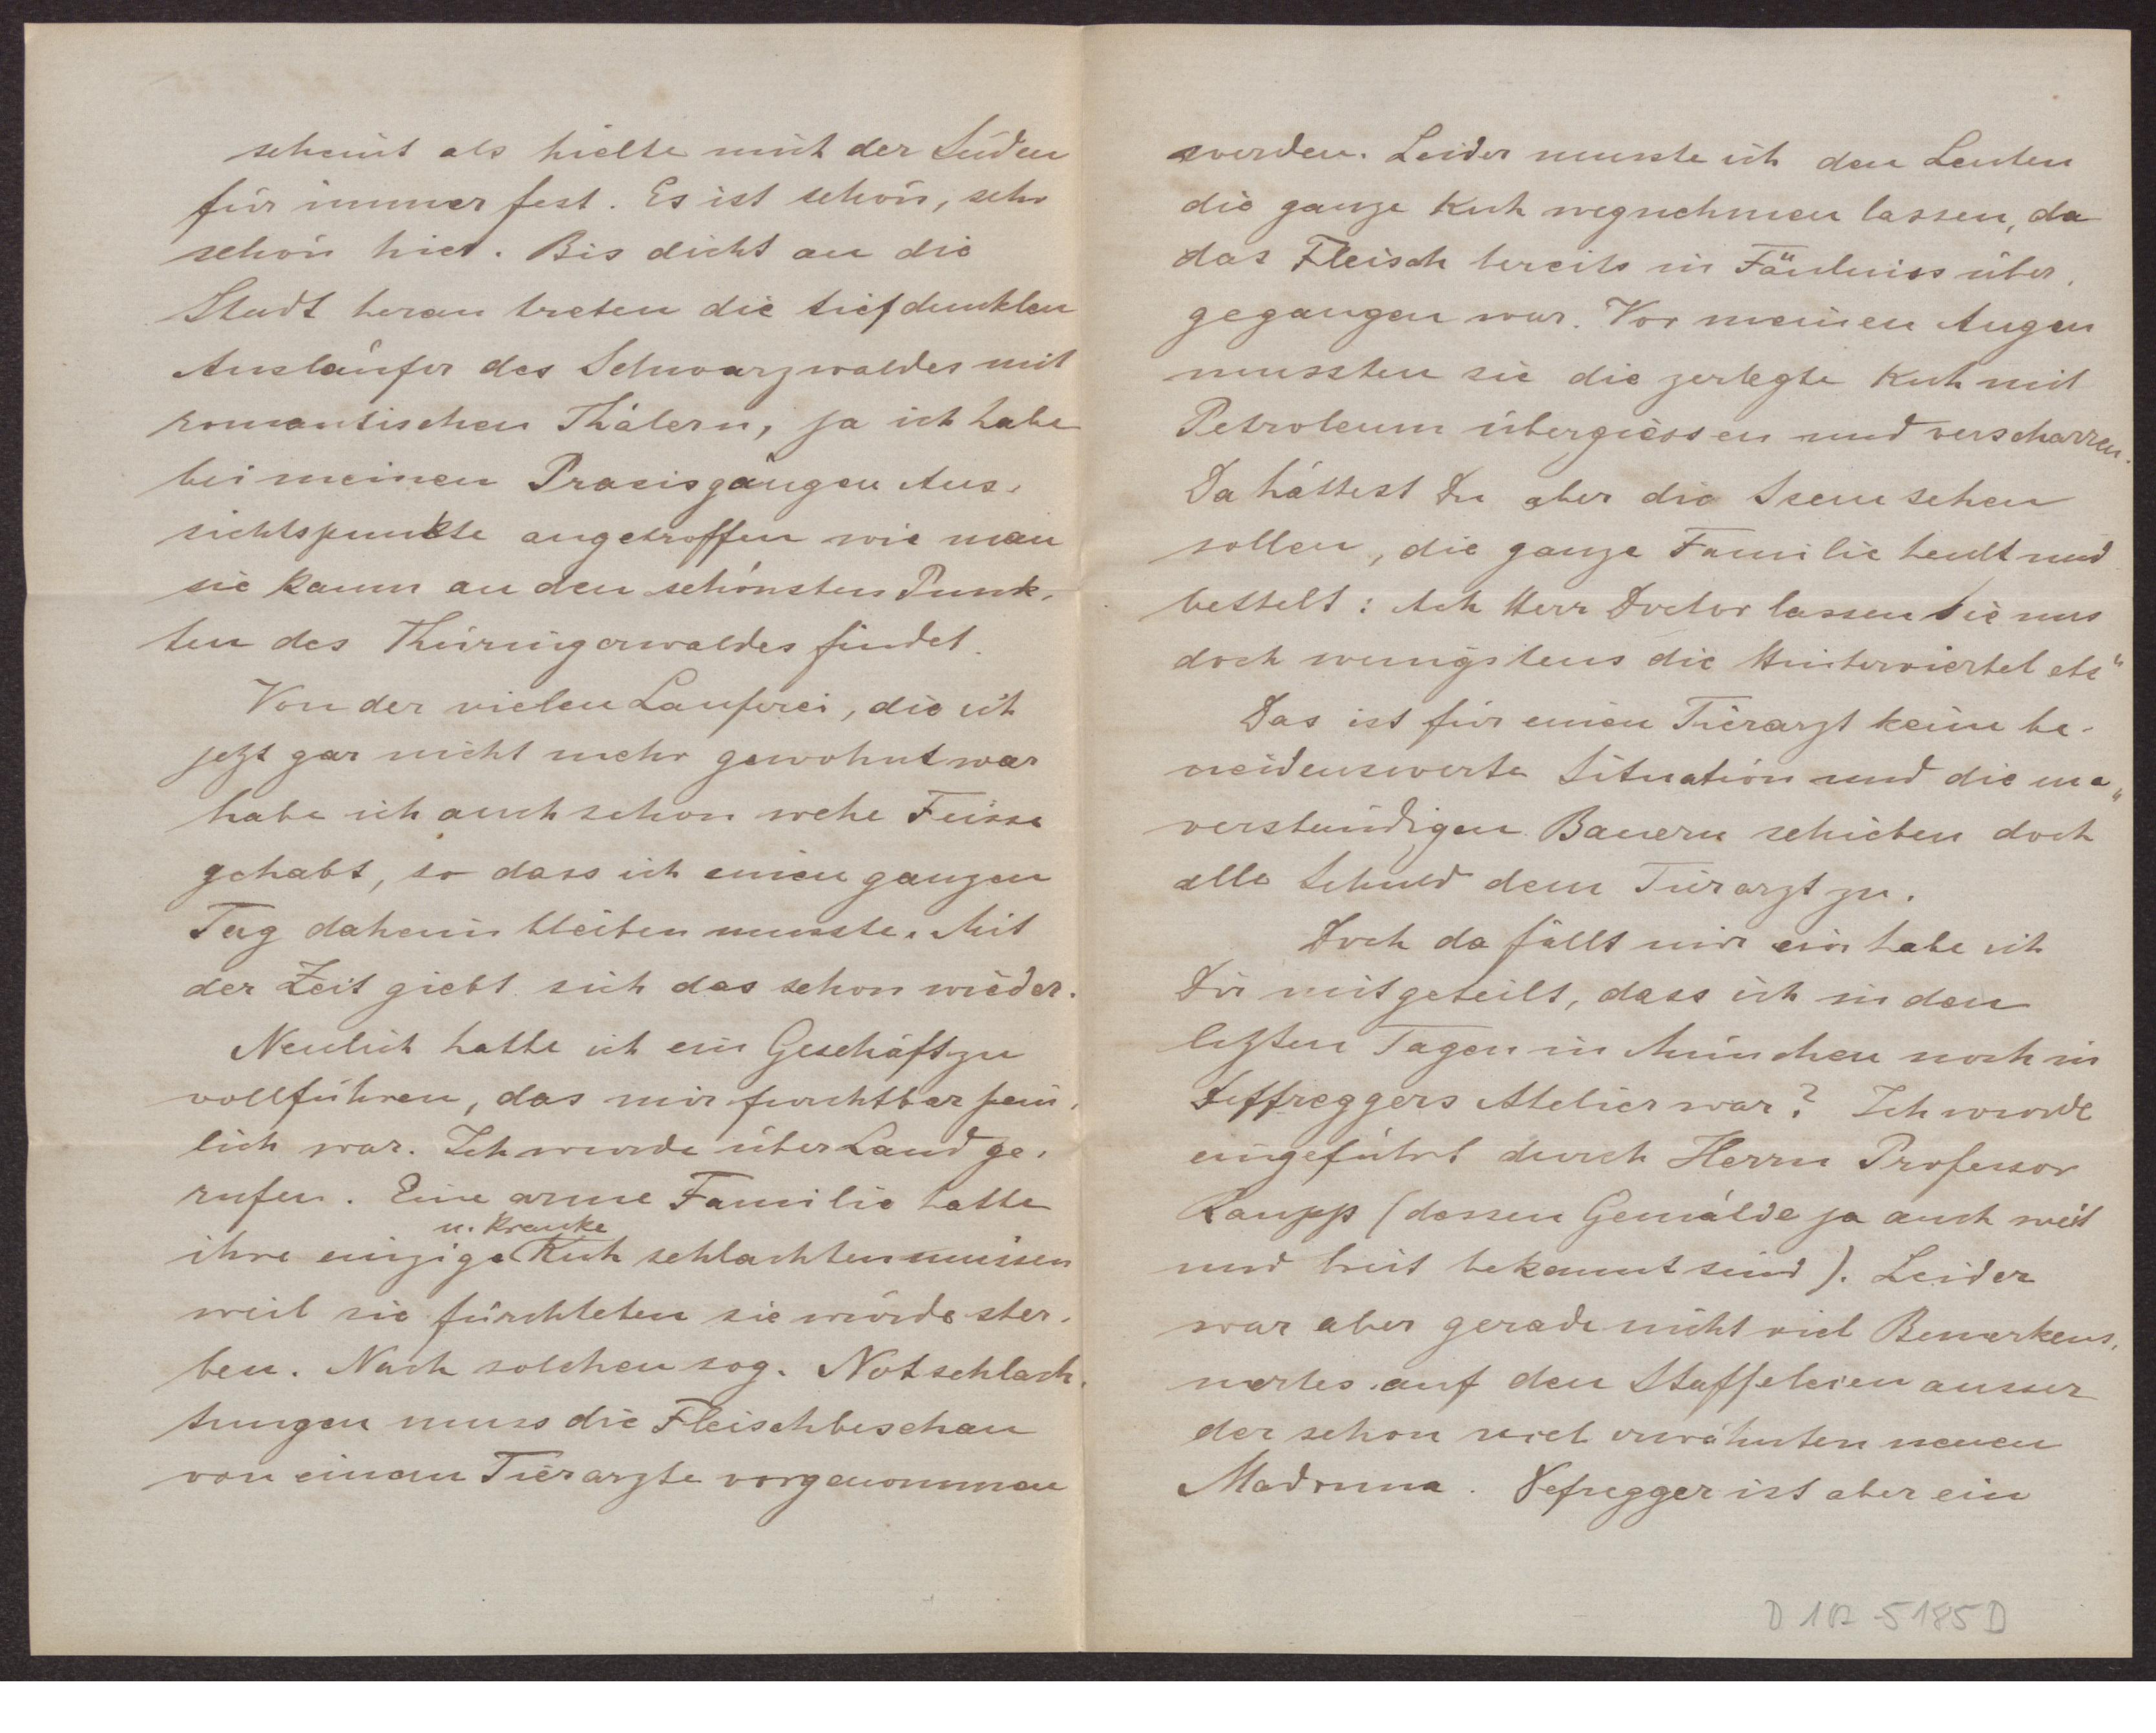 scheint als hielte mich der Süden
für immer fest. Es ist schön, sehr
schön hier. Bis dicht an die
Stadt heran treten die tiefdunklen
Ausläufer des Schwarzwaldes mit
romantischen Thälern, ja ich habe
bei meinen Praxisgängen Aus-
sichtspunkte angetroffen wie man
sie kaum an den schönsten Punk-
ten des Thüringerwaldes findet.
Von der vielen Lauferei, die ich
jezt gar nicht mehr gewohnt war
habe ich auch schon wehe Füsse
gehabt, so dass ich einen ganzen
Tag daheim bleiben musste. Mit
der Zeit giebt sich das schon wieder.
Neulich hatte ich ein Geschäft zu
vollführen, das mir furchtbar pein-
lich war. Ich wurde über Land ge-
rufen. Eine arme Familie hatte
u. kranke
ihre einzige Kuh schlachten müssen
weil sie fürchteten sie würde ster-
ben. Nach solchen sog. Notschlach-
tungen muss die Fleischbeschau
von einem Tierarzte vorgenommen
werden. Leider musste ich den Leuten
die ganze Kuh wegnehmen lassen, da
das Fleisch bereits in Fäulniss über-
gegangen war. Vor meinen Augen
mussten sie die zerlegte Kuh mit
Petroleum übergiessen und verscharren.
Da hättest Du aber die Scene sehen
sollen, die ganze Familie heult und
bettelt: Ach Herr Doctor lassen Sie uns
doch wenigstens die Hinterviertel etc"
Das ist für einen Tierarzt keine be-
neidenswerte Situation und die un-
verständigen Bauern schieben doch
alle Schuld dem Tierarzt zu.
Doch da fällt mir ein habe ich
Dir mitgeteilt, dass ich in den
lezten Tagen in München noch in
Deffreggers Atelier war? Ich wurde
eingeführt durch Herrn Professor
Raupp (dessen Gemälde ja auch weit
und breit bekannt sind). Leider
war aber gerade nicht viel Bemerkens-
wertes auf den Staffeleien ausser
der schon viel erwähnten neuen
Madonna. Defregger ist aber ein
D 117-5185 D